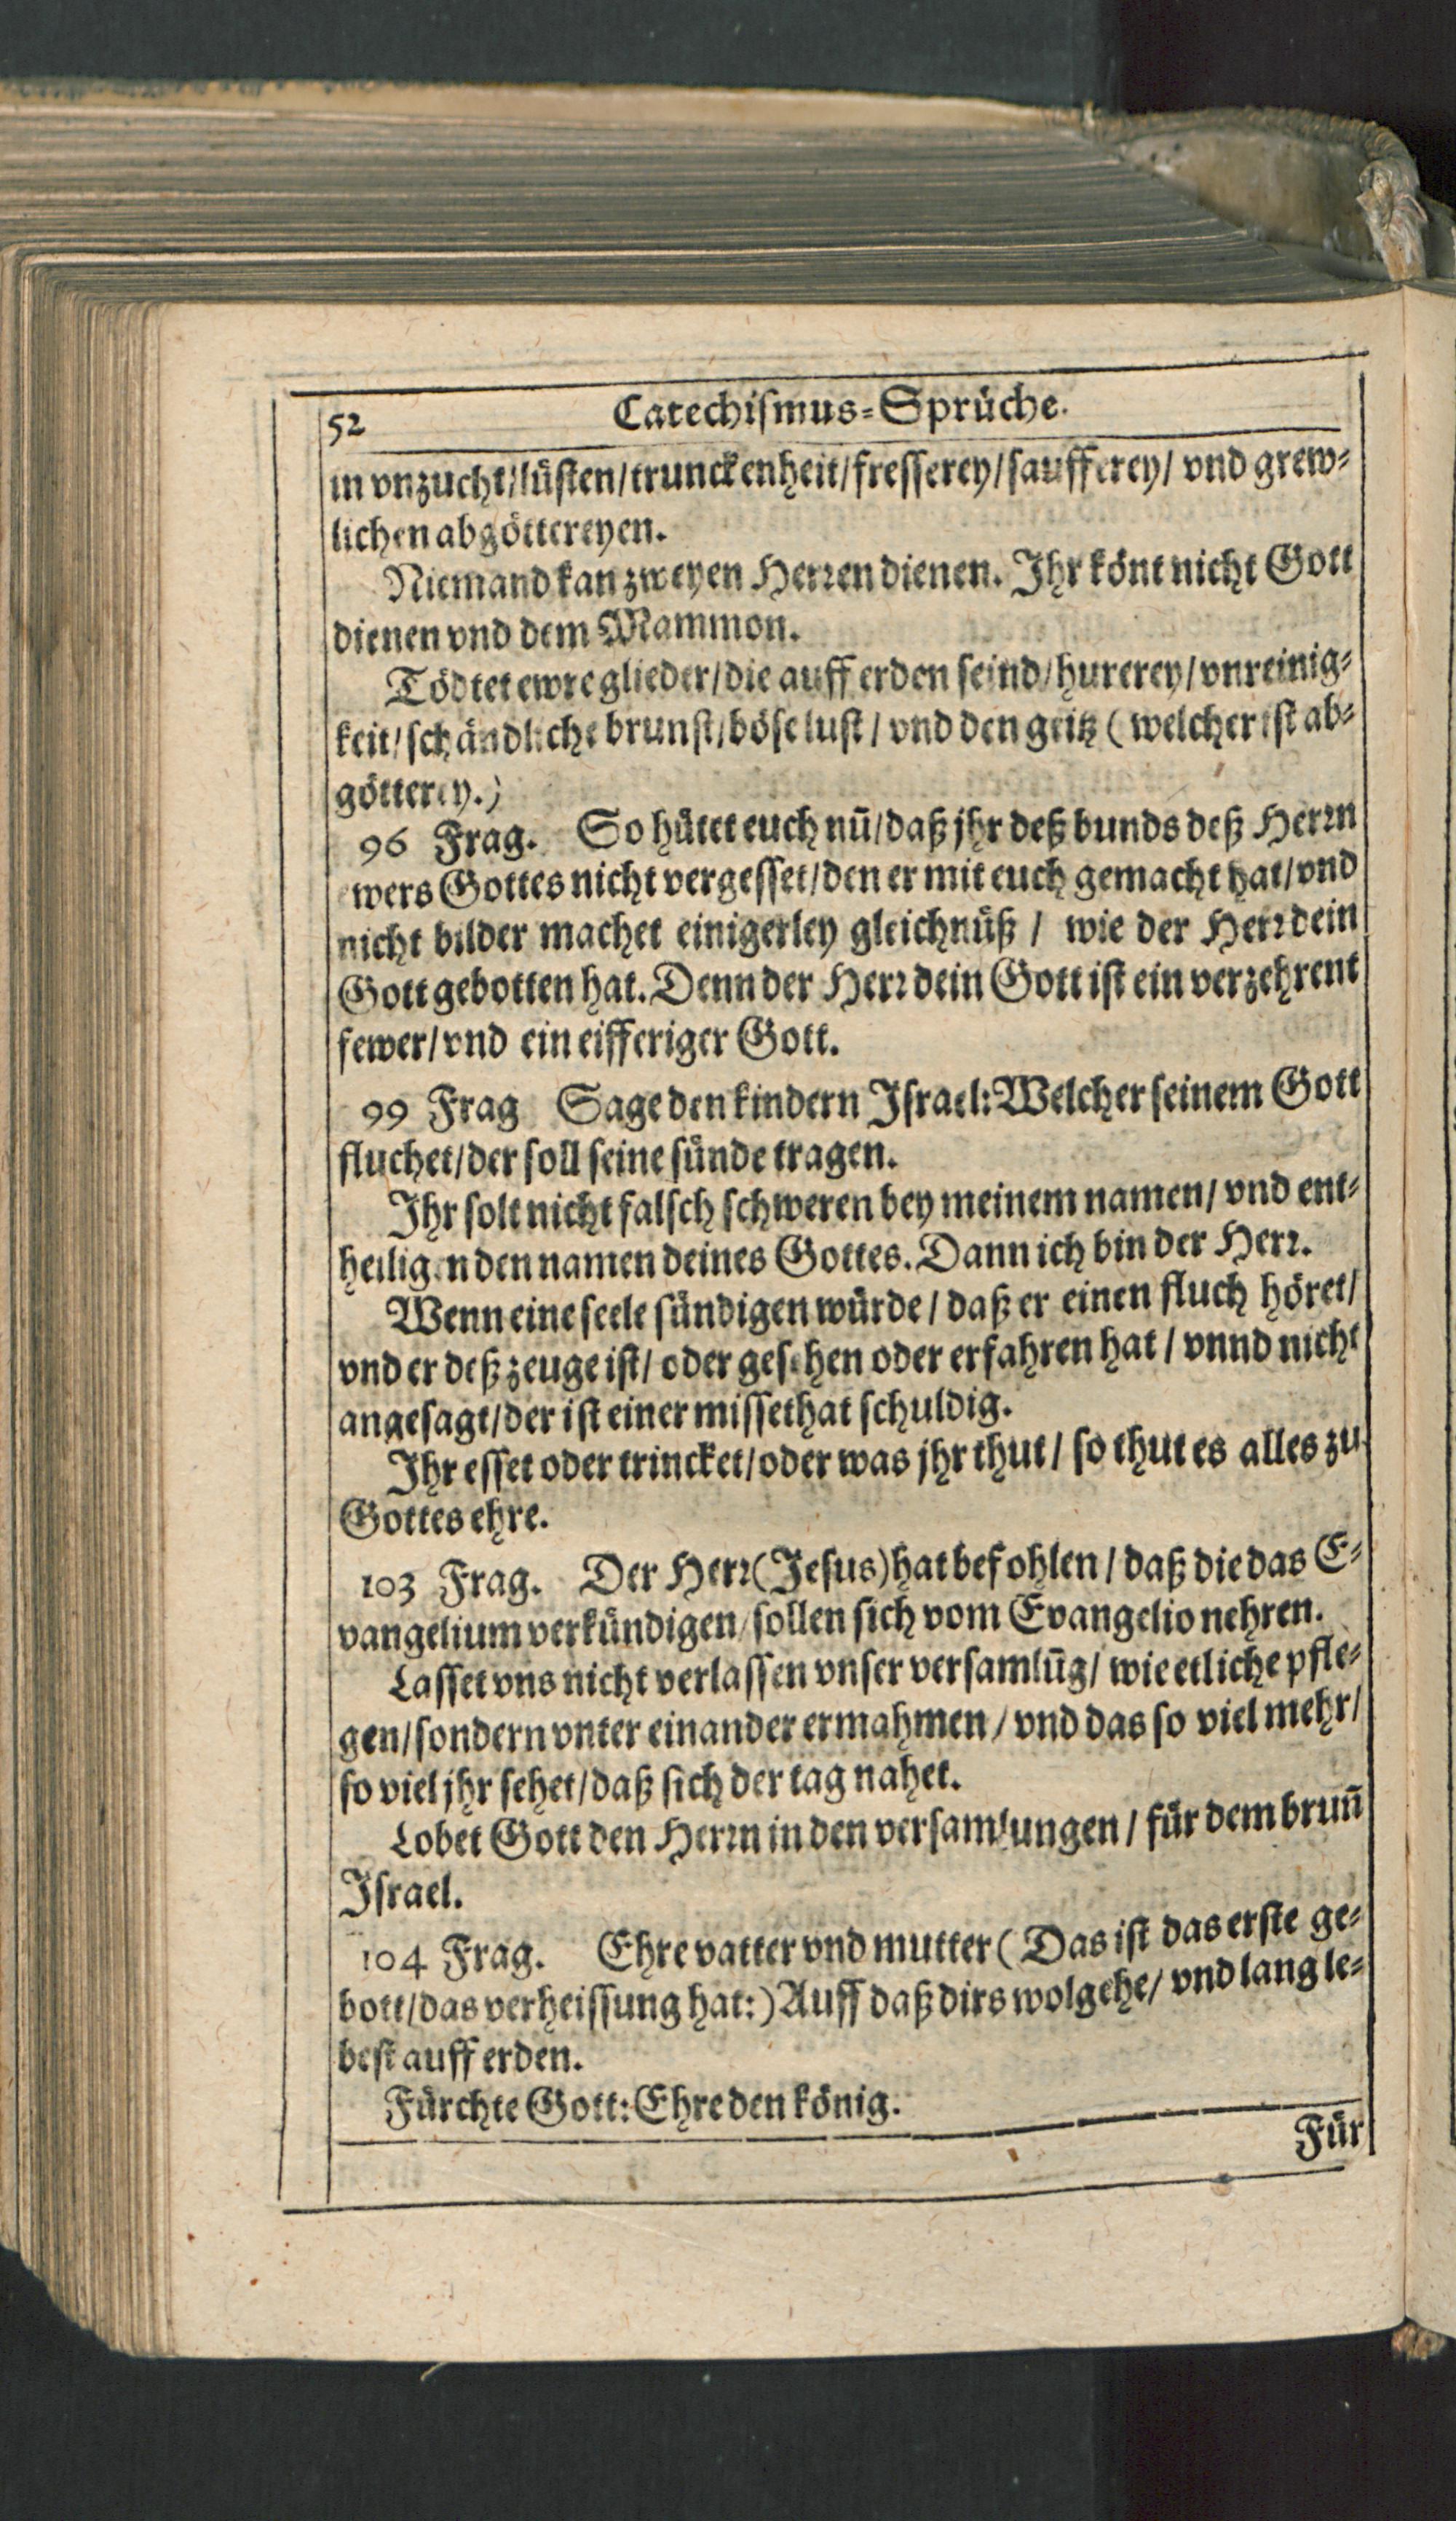 52 Catechiſmus-Sprüche.
in vnzucht/lüſten/trunckenheit/freſſerey/ſaufferey/ vnd grew-
lichen abgöttereyen.
Niemand kan zweyen Herren dienen. Ihr könt nicht Gott
dienen vnd dem Mammon.
Tödtet ewre glieder/die auff erden ſeind/hurerey/vnreinig-
keit/ſchändliche brunſt/böſe luſt/ vnd den geitz (welcher iſt ab-
götterey.)
96 Frag. So hütet euch nū/daß jhr deß bunds deß Herrn
ewers Gottes nicht vergeſſet/den er mit euch gemacht hat/vnd
nicht bilder machet einigerley gleichnüß / wie der Herr dein
Gott gebotten hat. Denn der Herr dein Gott iſt ein verzehrent
fewer/vnd ein eifferiger Gott.
99 Frag Sage den kindern Iſrael: Welcher ſeinem Gott
fluchet/der ſoll ſeine ſünde tragen.
Ihr ſolt nicht falſch ſchweren bey meinem namen/ vnd ent-
heiligen den namen deines Gottes. Dann ich bin der Herr.
Wenn eine ſeele ſündigen würde / daß er einen fluch höret/
vnd er deß zeuge iſt/ oder geſehen oder erfahren hat / vnnd nicht
angeſagt/der iſt einer miſſethat ſchuldig.
Ihr eſſet oder trincket/oder was jhr thut/ ſo thut es alles zu
Gottes ehre.
103 Frag. Der Herr (Jeſus) hat befohlen / daß die das E-
vangelium verkündigen/ſollen ſich vom Evangelio nehren.
Laſſet vns nicht verlaſſen vnſer verſamlūg/ wie etliche pfle-
gen/ſondern vnter einander ermahmen / vnd das ſo viel mehr/
ſo viel jhr ſehet/daß ſich der tag nahet.
Lobet Gott den Herrn in den verſamlungen / für dem brun̄
Iſrael.
104 Frag. Ehre vatter vnd mutter (Das iſt das erſte ge-
bott/das verheiſſung hat:) Auff daß dirs wolgehe/ vnd lang le-
beſt auff erden.
Fürchte Gott: Ehre den könig.
Für